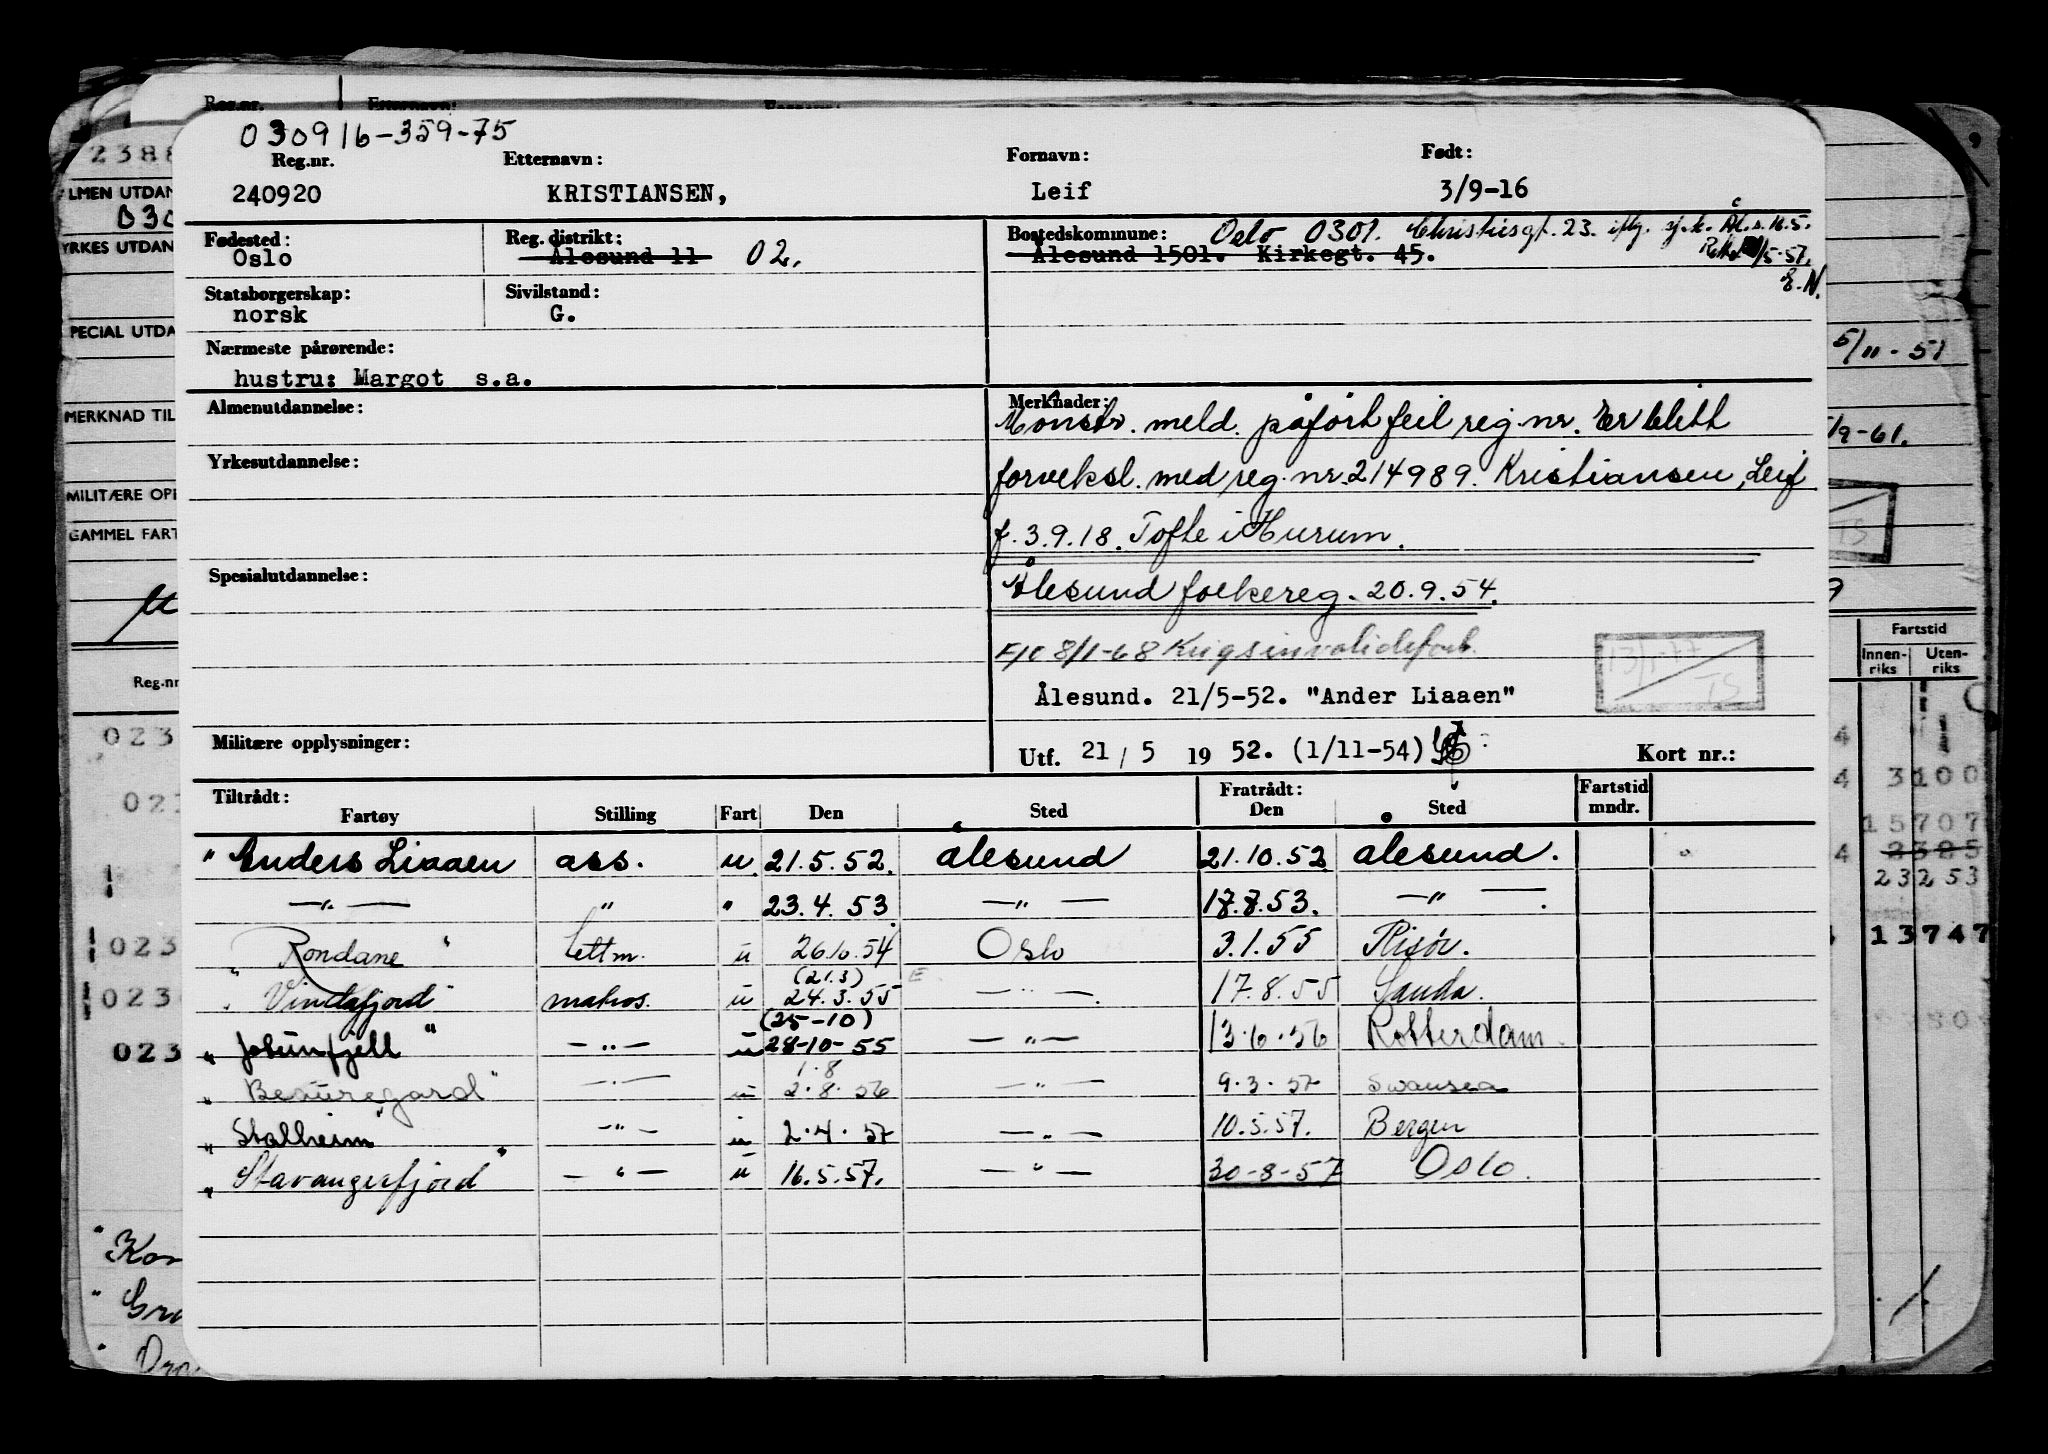 030916-359-75
Reg.nr. Etternavn: Fornavn: Født:
240920 KRISTIANSEN, Leif 3/9-16
Fødested: Reg. distrikt: Bostedskommune: Oslo 0301. Christiesgt. 23. iflg. sj.k. Ål.s. 16.5.
Oslo Ålesund 11 02. Ålesund 1501. Kirkegt. 45. /5-57.
E.N.
Statsborgerskap: Sivilstand:
norsk G.
Nærmeste pårørende:
hustru: Margot s.a.
Almenutdannelse: Merknader:
Mønstr. meld. påført feil reg.nr. Er blitt
Yrkesutdannelse:
forveksl. med reg.nr. 214989. Kristiansen, Leif
f. 3.9.18. Tofte i Hurum.
Spesialutdannelse:
Ålesund folkereg. 20.9.54.
8/1-68 Krigsinvalideforb.
13/1-77
TS
Ålesund. 21/5-52. "Ander Liaaen"
Militære opplysninger:
Utf. 21/5 1952. (1/11-54) Kort nr.:
Tiltrådt: Fratrådt: Fartstid
Fartøy Stilling Fart Den Sted Den Sted mndr.
" Anders Liaaen ass. u. 21.5.52. Ålesund 21.10.52 Ålesund.
—"— " " 23.4.53 —"— 18.8.53. —"—.
" Rondane " lettm. u 26.10.54 Oslo 3.1.55 Risør.
(21.3) E
" Vindafjord " matros. u 24.3.55 —"—. 17.8.55 Sauda.
(25-10)
" Jotunfjell " —"— u 28-10-55 —"— 13.6.56 Rotterdam.
1.8
" Beauregard " —"— u 2.8.56 —"— 9.3.57 Swansea
" Stalheim " —"— u 2.4.57 —"— 10.5.57. Bergen
" Stavangerfjord " —"— u 16.5.57. —"— 30-8-57 Oslo.
Reg.nr. Etternavn:
2388
LMEN UTDAN
030
YRKES UTDAN
PECIAL UTDA
MERKNAD TIL
MILITÆRE OPP
GAMMEL FART
Reg.nr
023
023
023
023
023
" Kon
" Gra
" Dro
5/11-51
/9-61.
TS
Fartstid
Innen-riks Uten-riks
4
4 3100
15707
4 2385
23253
13747